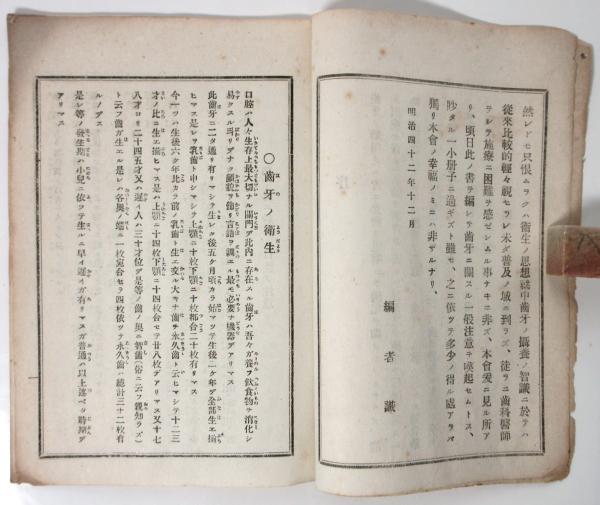 然レドモ只恨ムラクハ衛生ノ思想就中歯牙ノ攝養ノ智識ニ於テハ
從來比較的輕々視セラレ未ダ普及ノ域ニ到ラズ、徒ラニ歯科醫師
ヲシテ施療ニ困難ヲ感ゼシムル事ナキニ非ズ、本會爰ニ見ル所ア
リ、頃日此ノ書ヲ編シテ歯牙ニ關スル一般注意ヲ喚起セムトス、
眇タル一小册子ニ過ギズト雖モ、之ニ依ツテ多少ノ得ル處アラバ
獨リ本會ノ幸福ノミニハ非ザルナリ、
明治四十二年十二月
編者識
○歯牙ノ衛生
口腔ハ人々生存上最大切ナル關門デ此内ニ存在スル歯牙ハ吾々ガ養フ飲食物ヲ消化シ
易クスル而巳デナク顔貌ヲ飾リ言語ヲ調エル最モ必要ナ機器デアリマス
此歯牙ニ二タ通リ有リマシテ生レタ後五ケ月頃カラ始マツテ生後二ケ年デ全部生エ揃
ヒマス是レヲ乳歯ト申シマシテ上顎ニ十枚下顎ニ十枚都合二十枚有リマス
今一ツハ生後六ケ年比カラ前ノ乳歯ト生エ変ル大キナ歯ヲ永久歯ト云ヒマシテ十二三
才ノ比ニ生エ揃ヒマス是ハ上顎ニ十四枚下顎ニ十四枚合セテ廿八枚デアリマス又十七
八才ヨリ二十四五才又ハ遅イ人ハ三十才位デ是等ノ歯ノ奥ニ智歯(俗ニ云フ親知ラズ)
ト云フ歯ガ生エル是レハ各奥ノ端ニ一枚宛合セテ四枚依ツテ永久歯ハ總計三十二枚有
ルノデス
是レ等ノ發生期ハ小兒ニ依ツテ生ルニ早イ遅イガ有リマスガ普通ハ以上述ベタ時期デ
アリマス